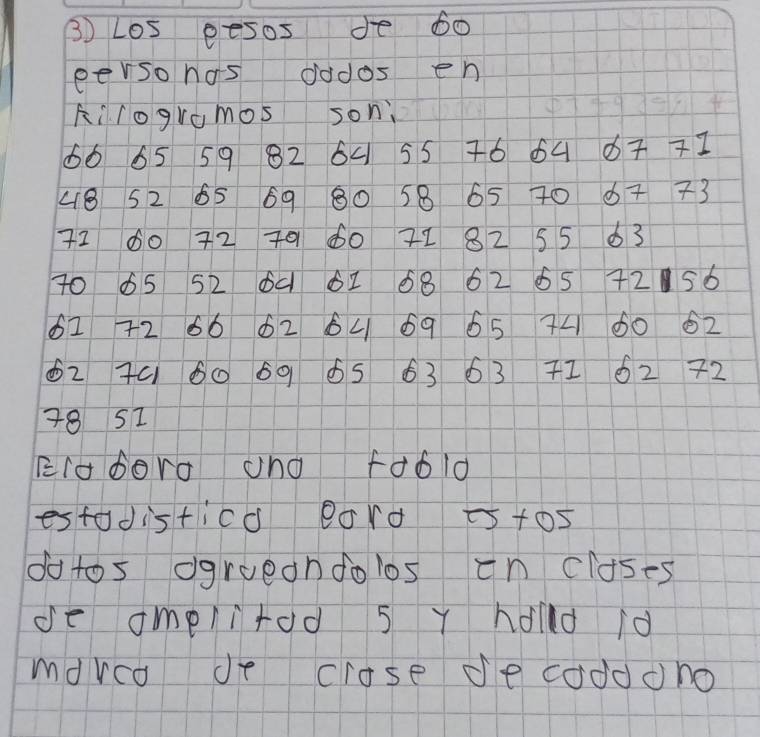 3) Los pesos de 60
personas dados en
Kilogramos son:
66 65 59 82 64 55 76 64 67 71
48 52 65 69 80 58 65 70 67 73
71 60 72 79 60 71 82 55 63
70 65 52 64 61 68 62 65 72 56
61 72 66 62 64 69 65 74 60 62
62 74 60 69 65 63 63 71 62 72
78 51
Elabora una tabla
estadistica para estos
datos agrupandolos en clases
de amplitad 5 y halla la
marca de clase de cada uno